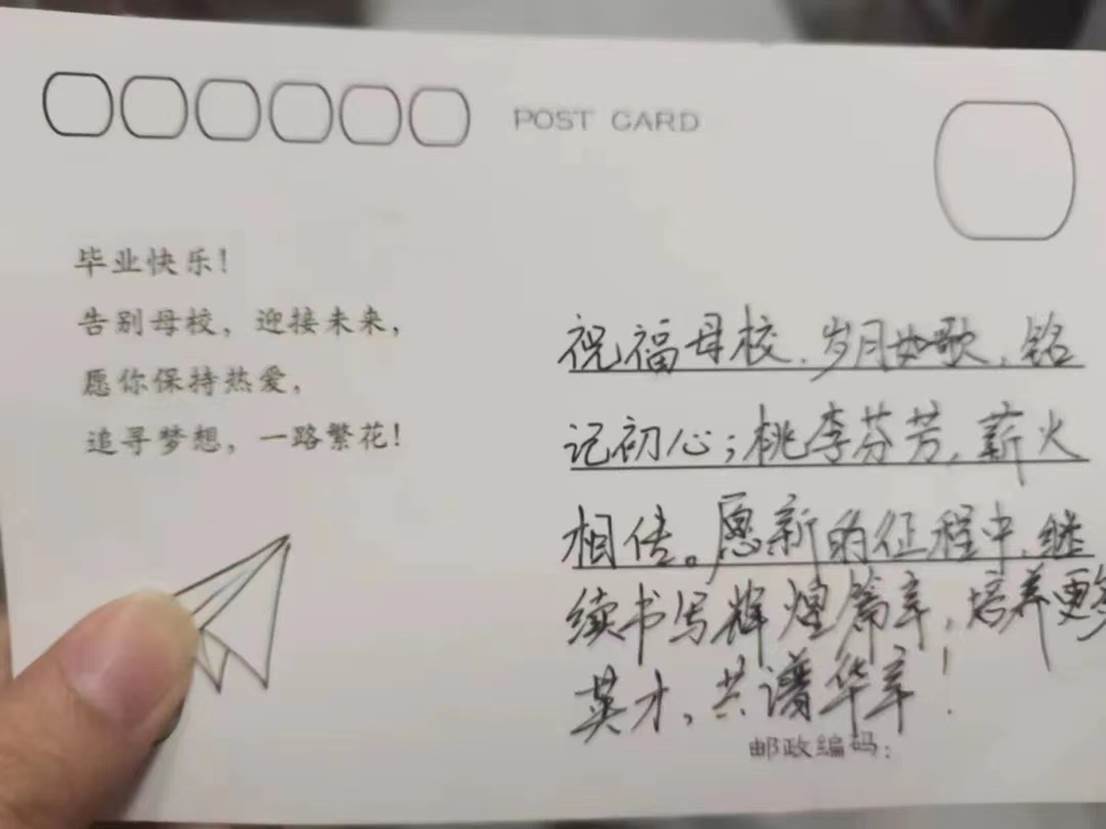 POST CARD
毕业快乐!
告别母校，迎接未来，
愿你保持热爱，
追寻梦想，一路繁花!
祝福母校，岁月如歌，铭
记初心；桃李芬芳，薪火
相传。愿新的征程中，继
续书写辉煌篇章，培养更多
英才，共谱华章！
邮政编码：